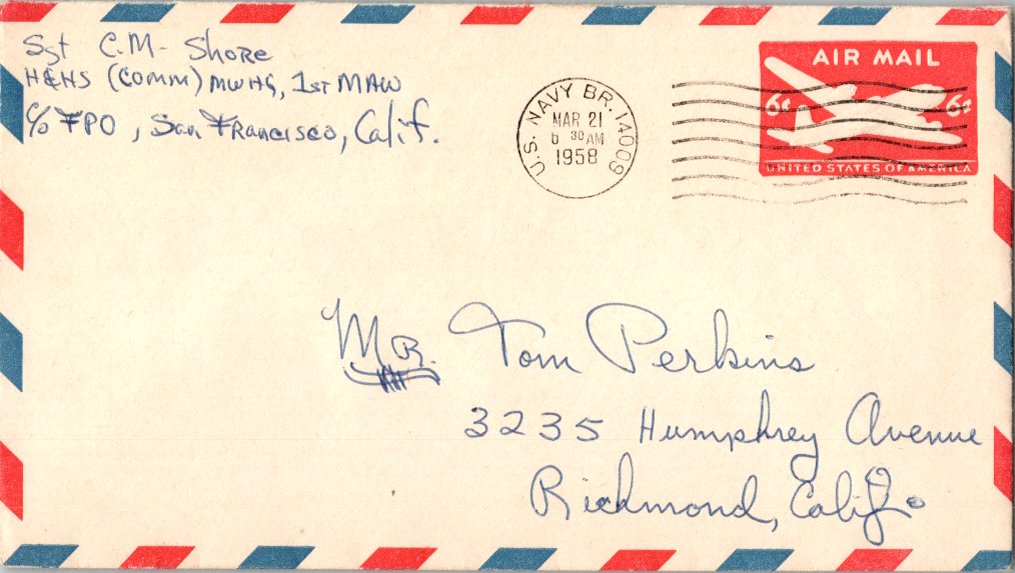 Sgt C.M- Shore
H&HS (COMM) MWHG, 1st MAW
c/o FPO, San Francisco, Calif.
U.S. NAVY BR. 14009
MAR 21
6 30 AM
1958
AIR MAIL
6¢ 6¢
UNITED STATES OF AMERICA
Mr. Tom Perkins
3235 Humphrey Avenue
Richmond, Calif.